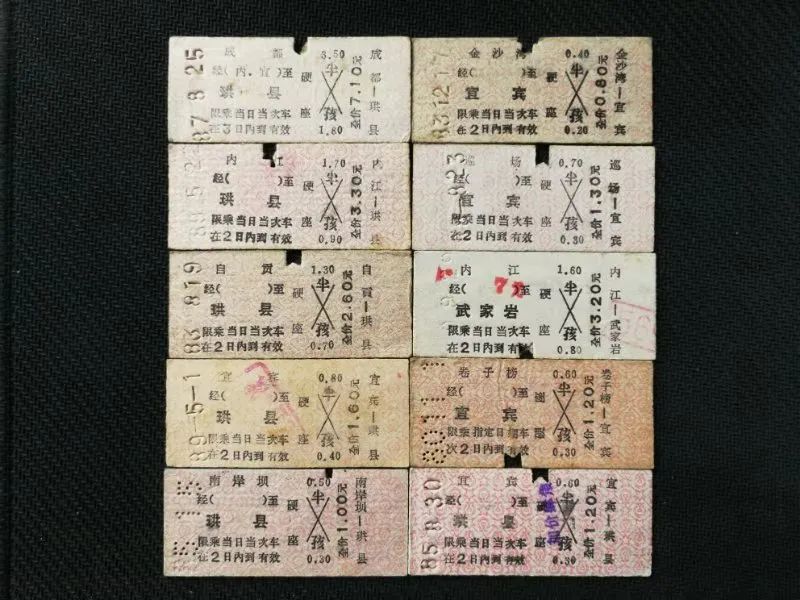 成都 3.50
经(内.宜)至 硬 半
珙县
限乘当日当次车 座 孩
在2日内到有效 1.80
全价7.10元
成都—珙县
87 8.25
金沙湾 0.40
经( )至 硬 半
宜宾
限乘当日当次车 座 孩
在2日内到有效 0.20
全价0.80元
金沙湾—宜宾
内江 1.70
经( )至 硬 半
珙县
限乘当日当次车 座 孩
在2日内到有效 0.90
全价3.30元
内江—珙县
巡场 0.70
经( )至 硬 半
宜宾
限乘当日当次车 座 孩
在2日内到有效 0.30
全价1.30元
巡场—宜宾
823
自贡 1.30
经( )至 硬 半
珙县
限乘当日当次车 座 孩
在2日内到有效 0.70
全价2.60元
自贡—珙县
83 819
内江 1.60
经( )至 硬 半
武家岩
限乘当日当次车 座 孩
在2日内到有效 0.80
全价3.20元
内江—武家岩
宜宾 0.80
经( )至 硬 半
珙县
限乘当日当次车 座 孩
在2日内到有效 0.40
全价1.60元
宜宾—珙县
89-5-1
卷子榜 0.60
经( )至 半
宜宾
限乘指定日期车 孩
次2日内到有效 0.30
全价1.20元
卷子榜—宜宾
南岸坝 0.50
经( )至 硬 半
珙县
限乘当日当次车 座 孩
在2日内到有效 0.30
全价1.00元
南岸坝—珙县
宜宾 0.60
经( )至 硬 半
珙县
限乘当日当次车 座 孩
在2日内到有效 0.30
全价1.20元
宜宾—珙县
85.8.30